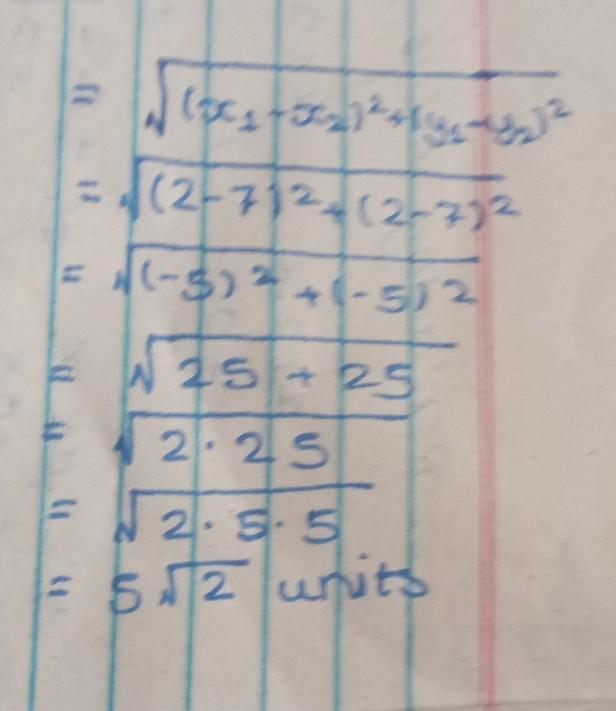 = √(x₁-x₂)²+(y₁-y₂)²
= √(2-7)²+(2-7)²
= √(-5)²+(-5)²
= √25+25
= √2·25
= √2·5·5
= 5√2 units